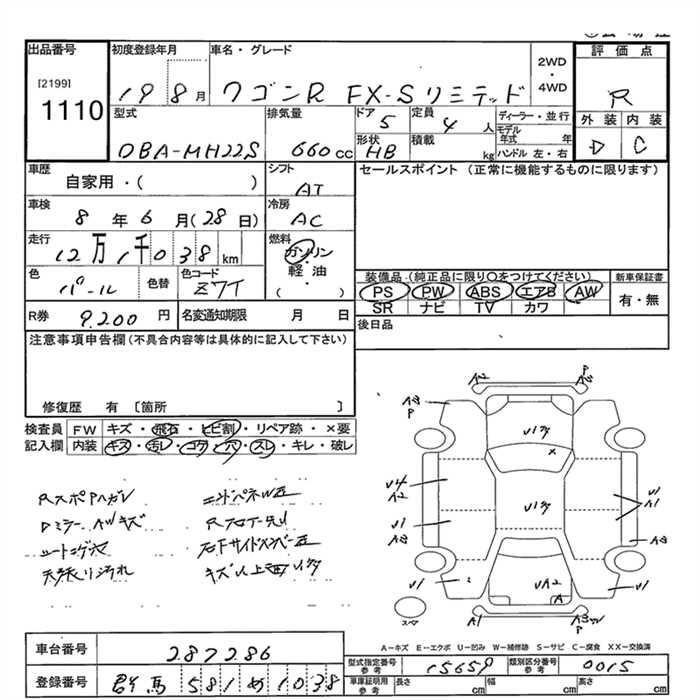 出品番号 初度登録年月 車名・グレード 2WD・4WD 評価点
[2199]
1110
19 8月 ワゴンR FX-Sリミテッド R
型式 排気量 ドア 5 定員 4人 ディーラー・並行 外装 内装
DBA-MH22S 660cc 形状 HB 積載 kg モデル年式 年 ハンドル 左・右 D C
車歴 自家用・( ) シフト AT セールスポイント (正常に機能するものに限ります)
車検 8年6月(28日) 冷房 AC
走行 12万1千038km 燃料 ガソリン・軽油・( )
色 パール 色替 色コード Z7T 装備品 (純正品に限り○をつけてください) 新車保証書
PS PW ABS エアB AW 有・無
SR ナビ TV カワ
R券 9,200円 名変通知期限 月 日 後日品
注意事項申告欄(不具合内容等は具体的に記入して下さい)
修復歴 有 〔箇所 〕
検査員 FW キズ・飛石・ヒビ割・リペア跡・×要
記入欄 内装 キズ・汚レ・コゲ・穴・スレ・キレ・破レ
RスポPハガレ
Dミラー AWキズ
シートコゲ穴
天張り汚れ
A2 P
A3 P
U1多
×
U4
A2
U1 U1多 U1
A1
U1
A3 A3
U1 UA2 U1
A
スペア A1
A-キズ E-エクボ U-凹み W-補修跡 S-サビ C-腐食 XX-交換済
車台番号 287286
型式指定番号 参考 15659 類別区分番号 参考 0015
登録番号 群馬 581 め 1038
車庫証明用 参考 長さ cm 幅 cm 高さ cm